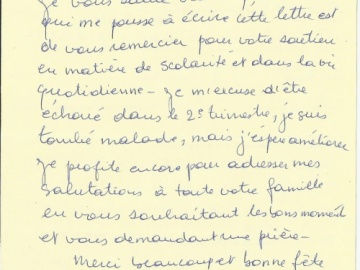 Je vous salue
qui me pousse à écrire cette lettre est
de vous remercier pour votre soutien
en matière de scolarité et dans la vie
quotidienne - Je m'excuse d'être
échoué dans le 2e trimestre, je suis
tombé malade, mais j'espère améliorer
Je profite encore pour adresser mes
salutations à toute votre famille
en vous souhaitant les bons moment
et vous demandant une prière -
Merci beaucoup et bonne fête